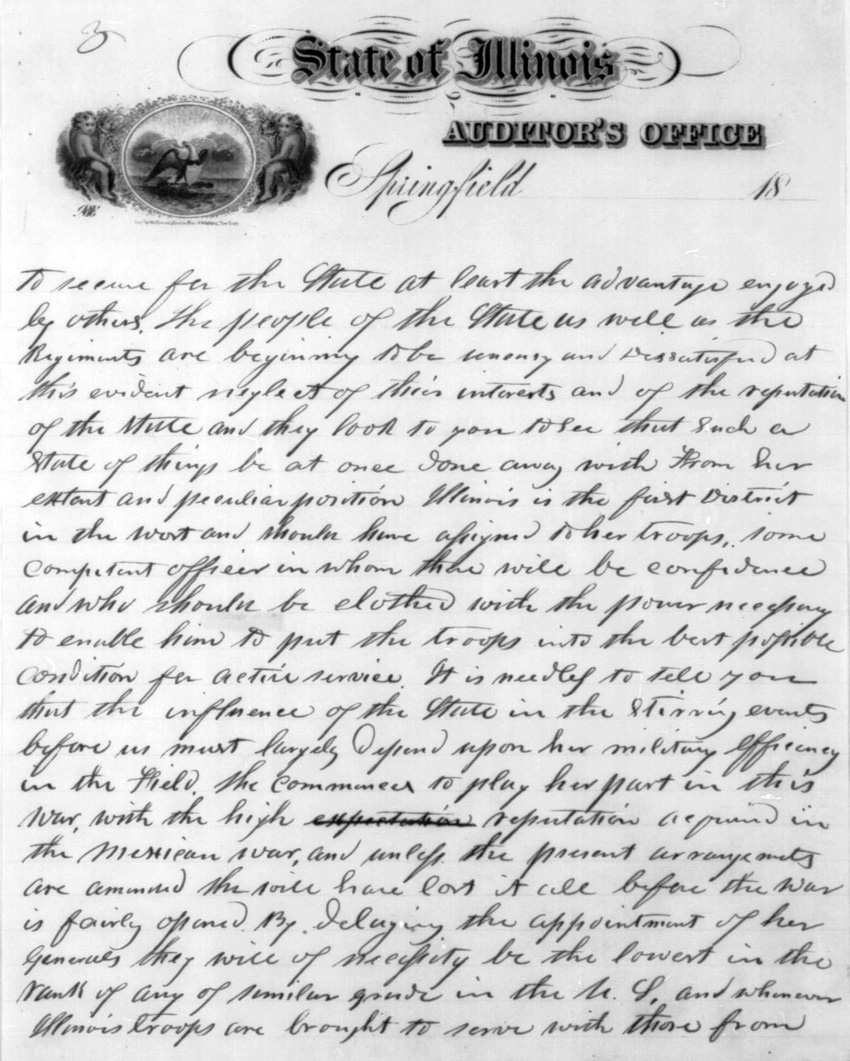 3
State of Illinois
AUDITOR'S OFFICE
Springfield 18
to secure for the State at least the advantage enjoyed
by others. The people of the State as well as the
Regiments are beginning to be uneasy and dissatisfied at
this evident neglect of their interests and of the reputation
of the State and they look to you to see that such a
State of things be at once done away with From her
extent and peculiar position Illinois is the first District
in the west and should have assigned to her troops, some
competent officer in whom there will be confidence
and who should be clothed with the power necessary
to enable him to put the troops into the best possible
condition for active service. It is needless to tell you
that the influence of the State in the Stirring events
before us must largely depend upon her military efficiency
in the Field. She commences to play her part in this
War, with the high expectation reputation acquired in
the Mexican war, and unless the present arrangements
are amended she will have lost it all before the War
is fairly opened. By delaying the appointment of her
Generals they will of necessity be the lowest in the
rank of any of similar grade in the U. S. and whenever
Illinois troops are brought to serve with those from